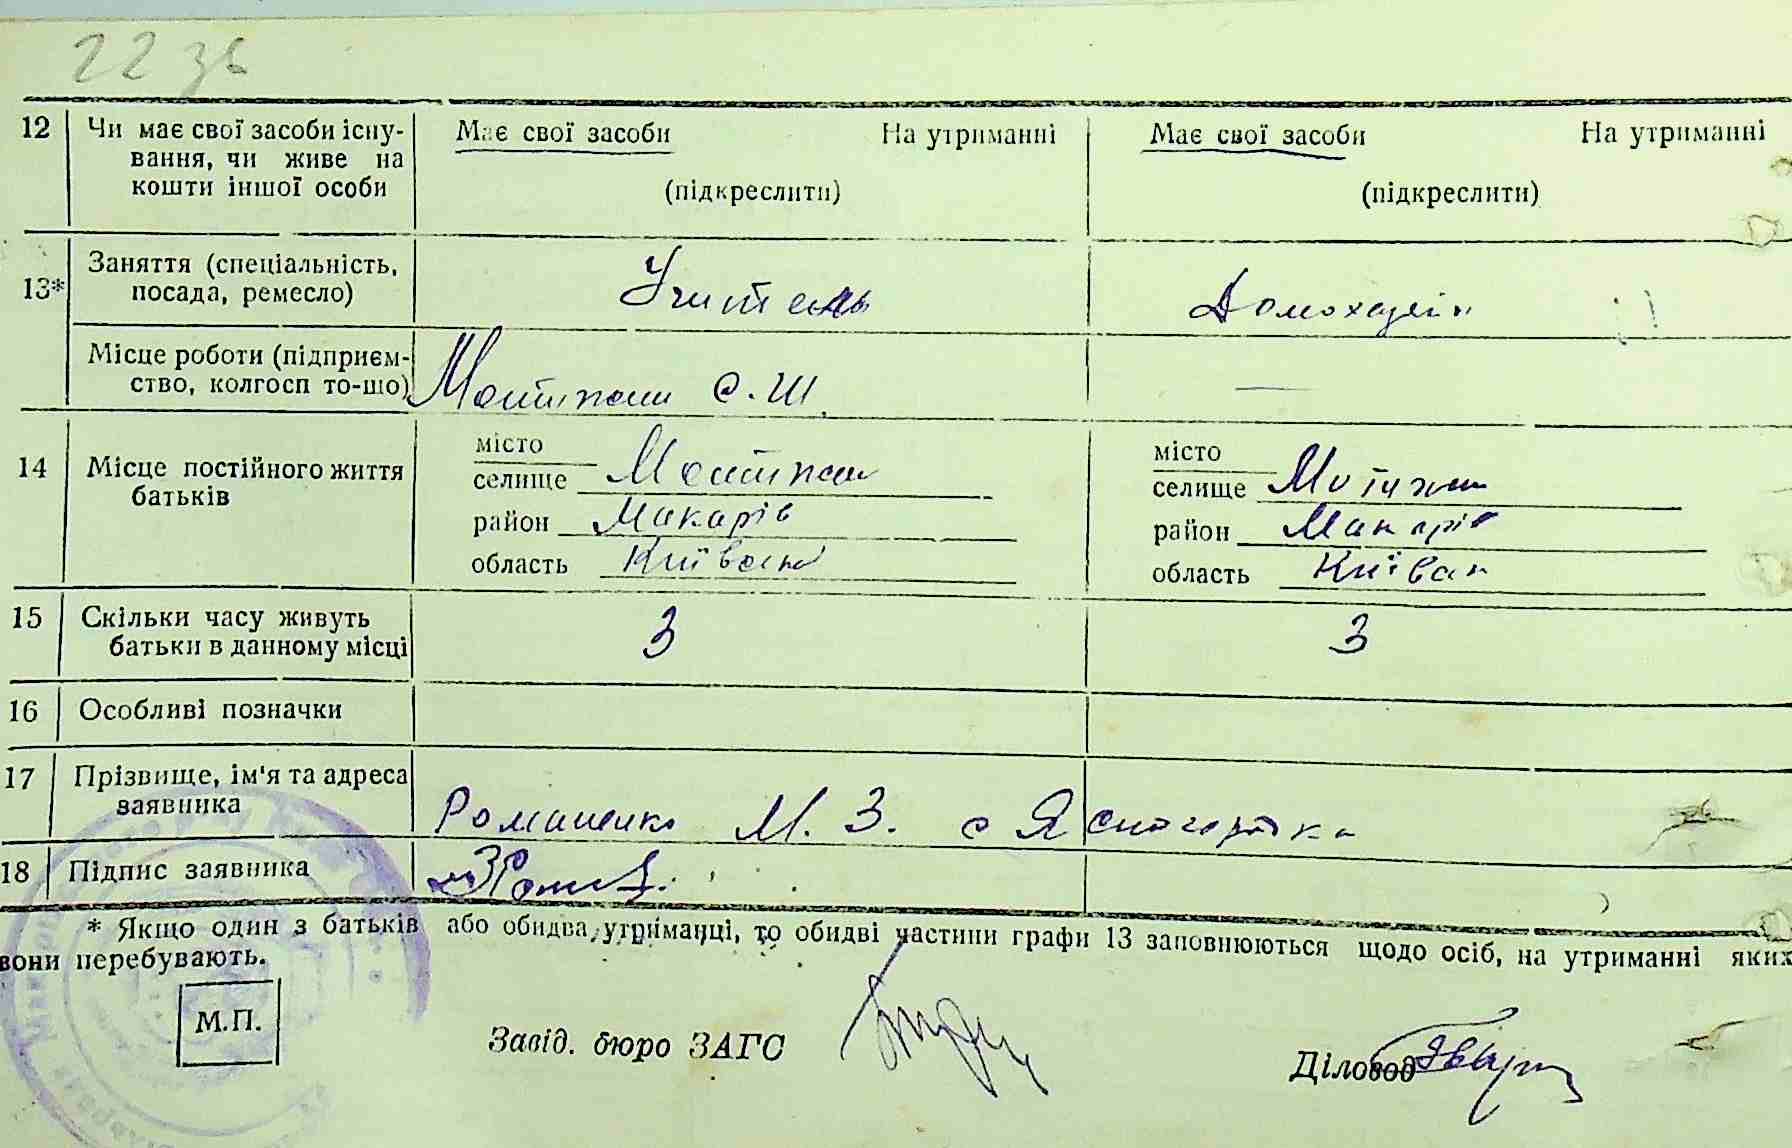 22 зв
12 Чи має свої засоби існу- Має свої засоби На утриманні Має свої засоби На утриманні
вання, чи живе на
кошти іншої особи (підкреслити) (підкреслити)
13* Заняття (спеціальність, Учитель Домохазяйк
посада, ремесло)
Місце роботи (підприєм-
ство, колгосп то-що) С.Ш. —
14 Місце постійного життя місто місто
батьків селище селище Мотижин
район Макарів район Макарів
область Київськ область Київськ
15 Скільки часу живуть 3 3
батьки в данному місці
16 Особливі позначки
17 Прізвище, ім'я та адреса
заявника Романенко М. З. с Ясногородка
18 Підпис заявника
* Якщо один з батьків або обидва утриманці, то обидві частини графи 13 заповнюються щодо осіб, на утриманні яких
вони перебувають.
М.П.
Завід. бюро ЗАГС Діловод